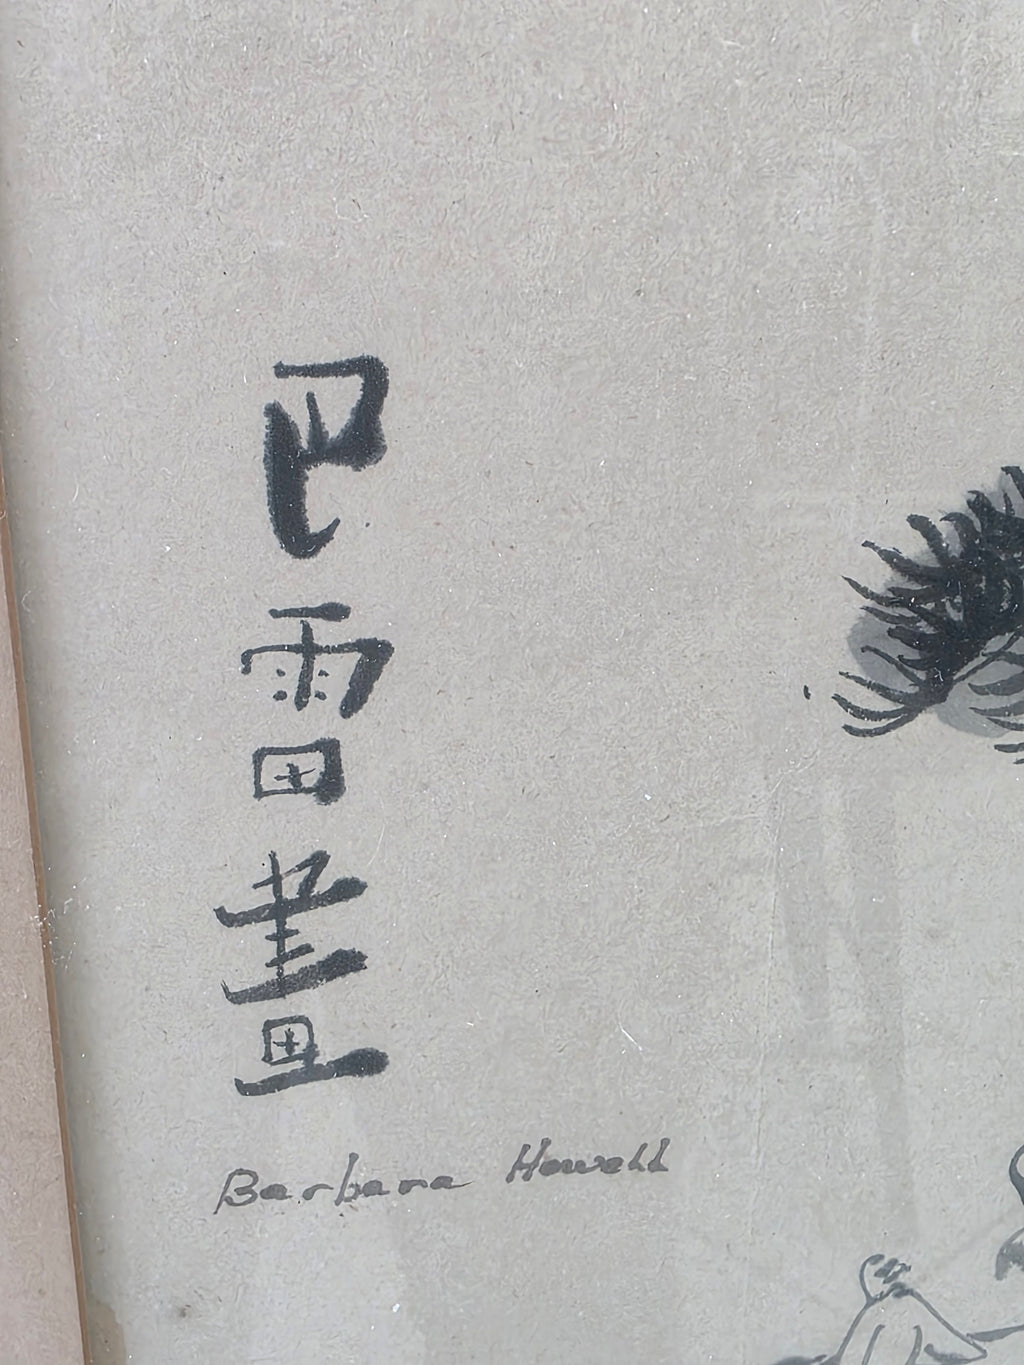 巴雷畫
Barbara Howell